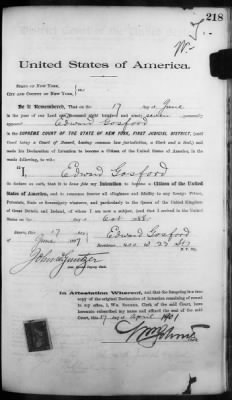 218
United States of America.
STATE OF NEW YORK,
CITY AND COUNTY OF NEW YORK,
Be it Remembered, That on the 17 day of June
in the year of our Lord one thousand eight hundred and ninety seven personally
appeared Edward Gosford
in the SUPREME COURT OF THE STATE OF NEW YORK, FIRST JUDICIAL DISTRICT, (said
Court being a Court of Record, having common law jurisdiction, a Clerk and a Seal) and
made his Declaration of Intention to become a Citizen of the United States of America, in the
words following, to wit:
"I, Edward Gosford
do declare on oath, that it is bona fide my Intention to become a Citizen of the United
States of America, and to renounce forever all allegiance and fidelity to any foreign Prince,
Potentate, State or Sovereignty whatever, and particularly to the Queen of the United Kingdom
of Great Britain and Ireland, of whom I am now a subject, (and that I arrived in the United
States on the day of Oct
Sworn, this 17 day
June 1897
Edward Gosford
Residence
N. Y. City.
In Attestation Whereof, and that the foregoing is a true
copy of the original Declaration of Intention remaining of record
in my office, I, WM. SOHMER, Clerk of the said Court, have
hereunto subscribed my name and affixed the seal of the said
Court, this 17 day of April 1901
Wm Sohmer
Clerk.